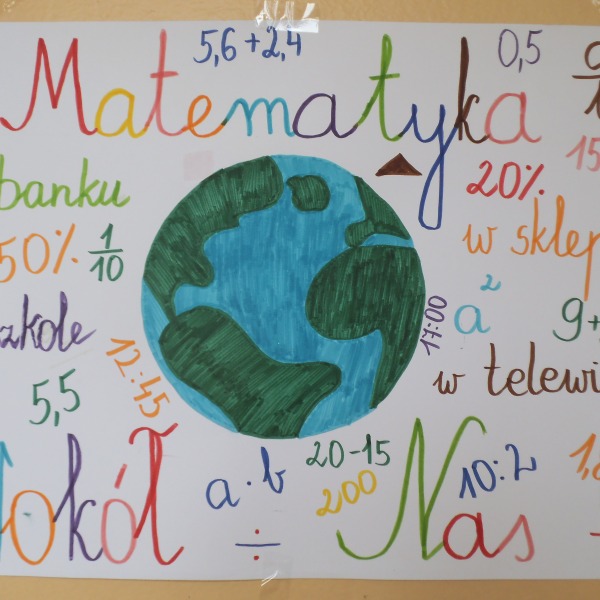 5,6 + 2,4
0,5
Matematyka
15
banku
20%
50%
1/10
w sklep
a²
17:00
9+
zkole
12:45
w telewi
5,5
okół
a·b
20-15
200
10:2
Nas
÷